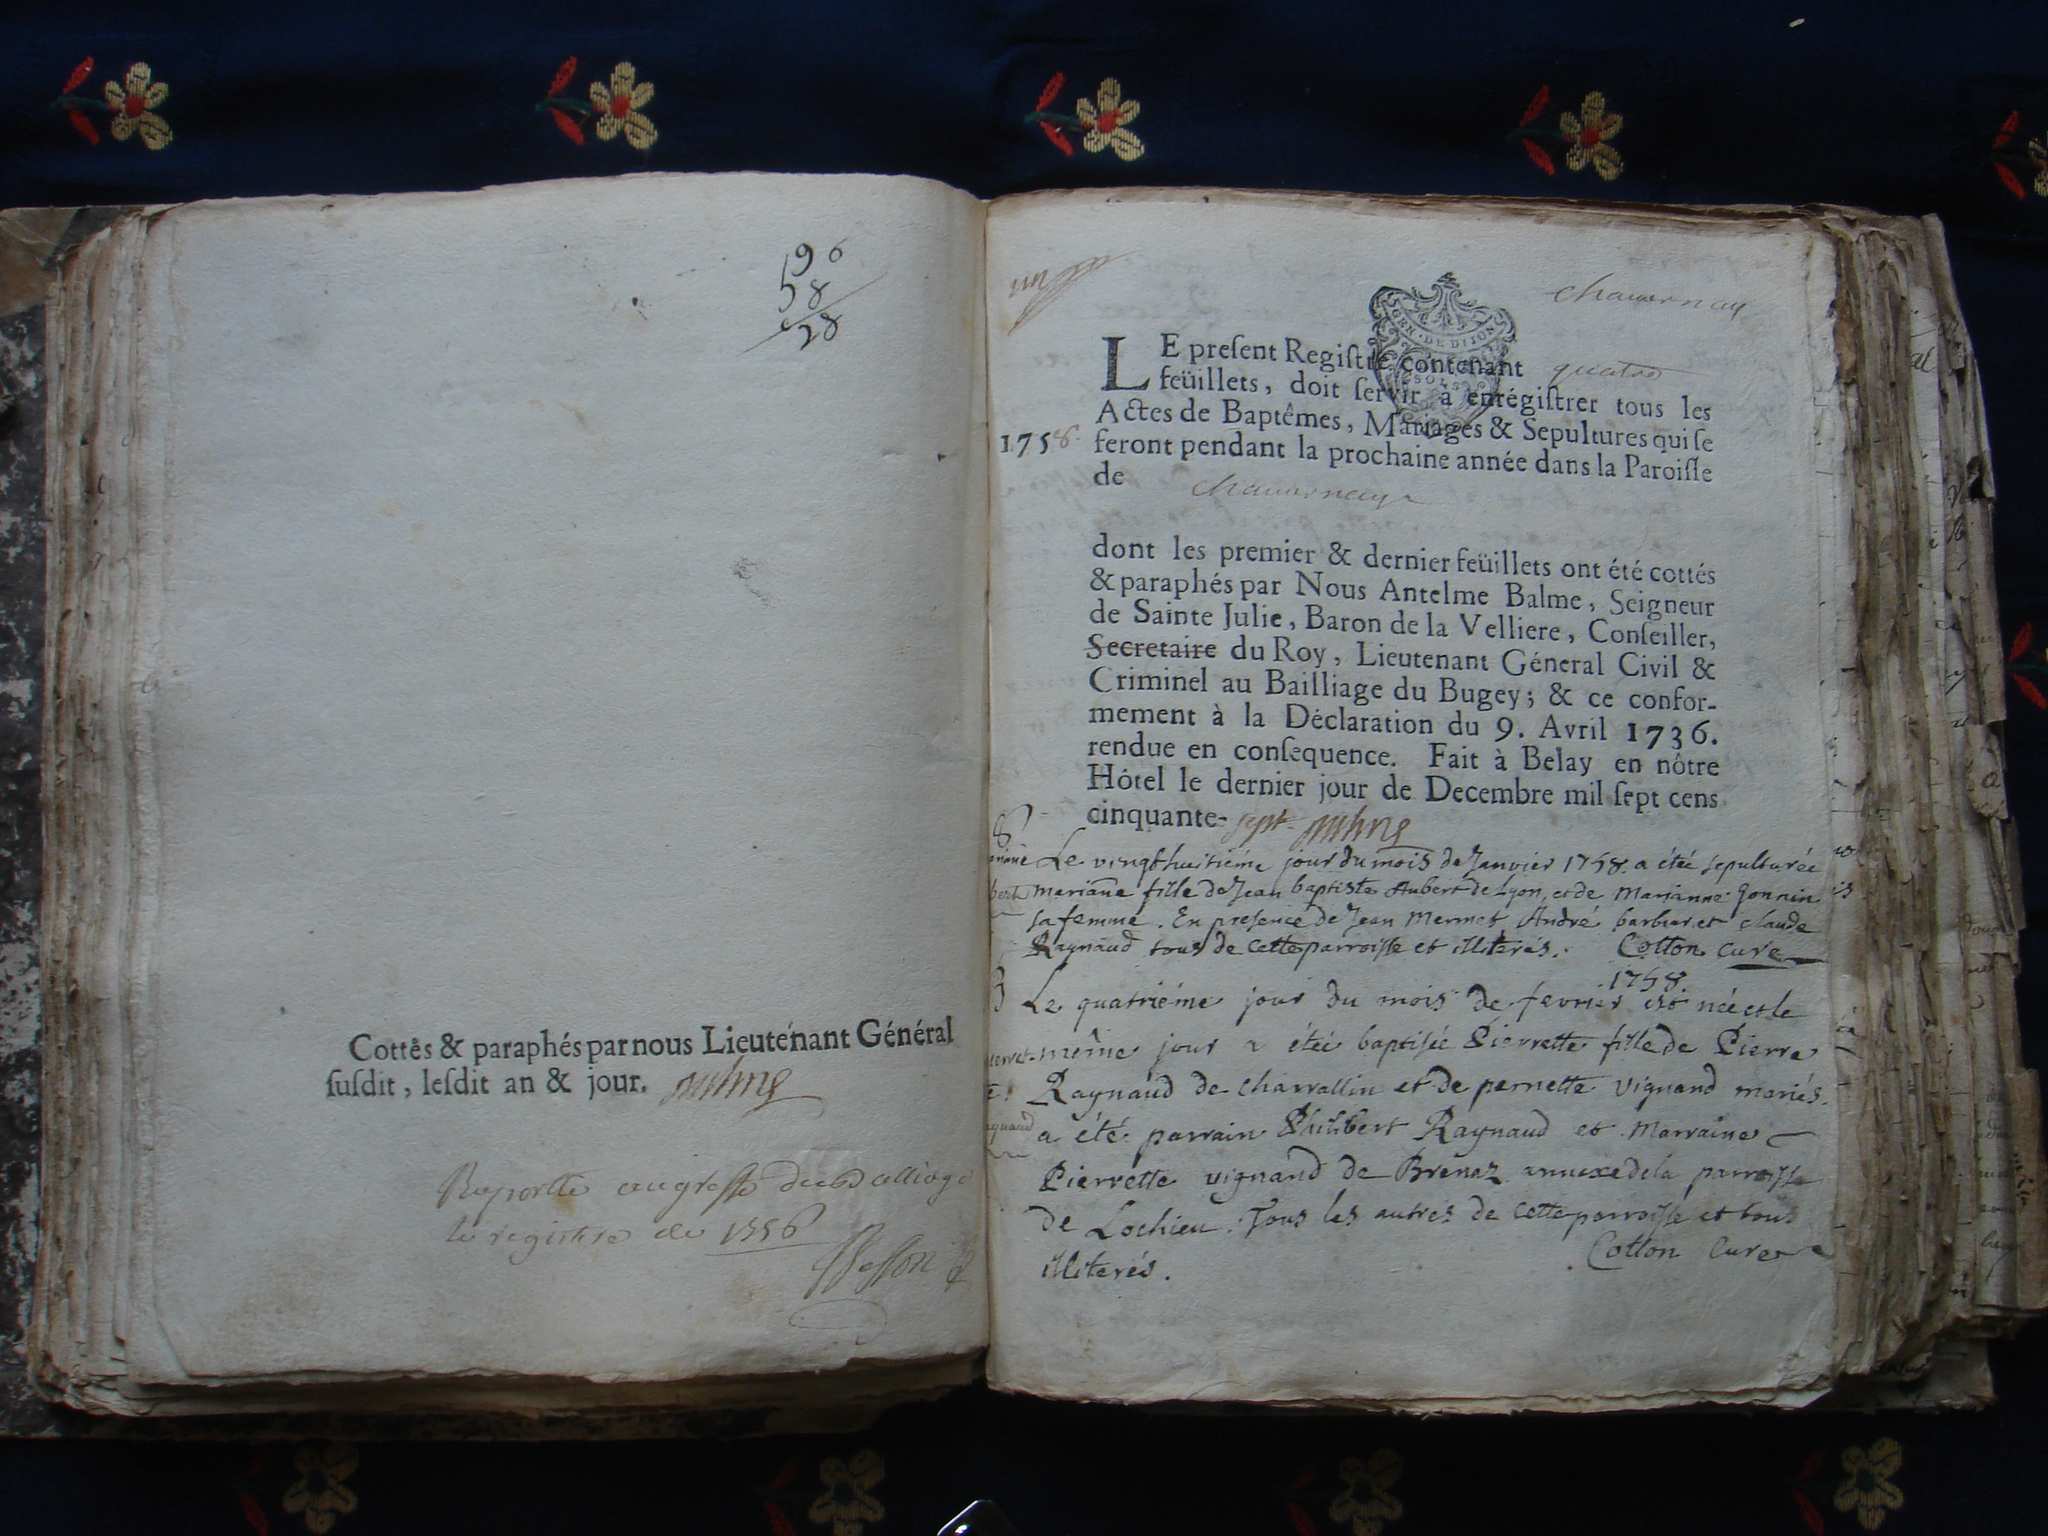 96
58
28
Cottés & paraphés par nous Lieutenant Général
susdit, lesdit an & jour.
Raporté au greffe du Balliage
le registre de 1756
un
GEN. DE DIJON
SOLS
LE present Registre contenant quatre
feüillets, doit servir à enrégistrer tous les
Actes de Baptêmes, Mariages & Sepultures qui se
1758.
feront pendant la prochaine année dans la Paroisse
de
dont les premier & dernier feüillets ont été cottés
& paraphés par Nous Antelme Balme, Seigneur
de Sainte Julie, Baron de la Velliere, Conseiller,
Secretaire du Roy, Lieutenant Géneral Civil &
Criminel au Bailliage du Bugey; & ce confor-
mement à la Déclaration du 9. Avril 1736.
rendue en consequence. Fait à Belay en nôtre
Hôtel le dernier jour de Decembre mil sept cens
cinquante- sept
Le vingt huitiéme jour du mois de Janvier 1758. a étée sepulturée
Marianne fille de Jean baptiste Aubert de Lyon, et de Marianne Gonnin
sa femme. En presence de Jean Mermet André barbier et claude
Raynaud tous de cette parroisse et illiterés. Cotton curé
1758.
Le quatriéme jour du mois de fevrier est née et le
même jour a étée baptisée Pierrette fille de Pierre
Raynaud de charvallin et de pernette vignand mariés.
a été parrain Philibert Raynaud et Marraine
Pierrette vignand de Brenaz annexe de la parroisse
de Lochieu. Tous les autres de cette parroisse et tous
illiterés. Cotton Curé